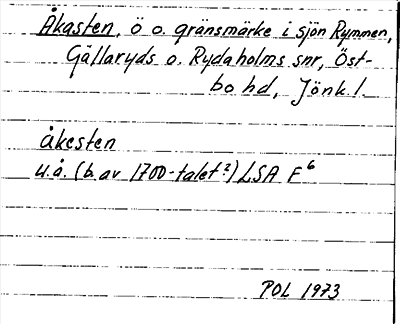 Åkasten, ö o. gränsmärke i sjön Rymmen,
Gällaryds o. Rydaholms snr, Öst-
bo hd, Jönk l.
åkesten
u.å. (b. av 1700-talet?) LSA F6
POL 1973